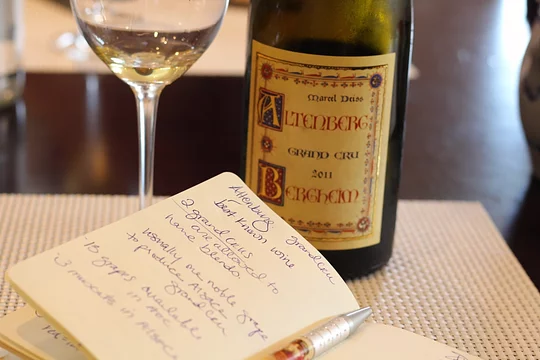 Marcel Deiss
ALTENBERG
GRAND CRU
2011
BERGHEIM
Altenburg grand cru
best known wine
2 grand crus
are allowed to
have blends
normally one noble grape
to produce Alsace
grand cru
13 grapes available
in AOC
3 muscats in Alsace